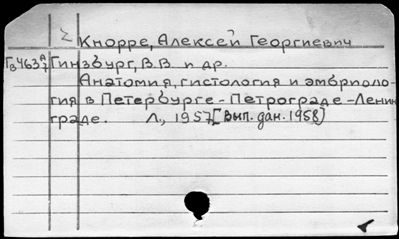 Σ Кнорре, Алексей Георгиевич
Гв463 Я/7 Гинзбург, В.В. и др.
Анатомия, гистология и эмбриоло-
гия в Петербурге - Петрограде - Ленин
граде. Л., 1957 [Вып. дан. 1958]